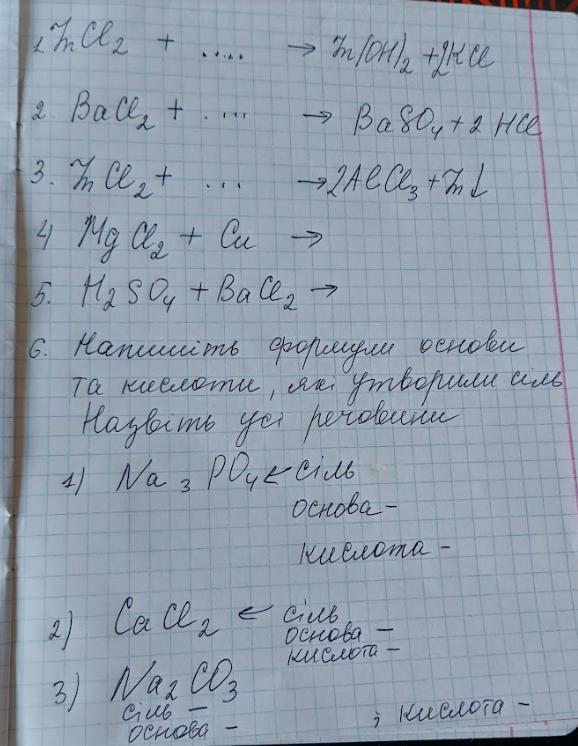 1. ZnCl₂ + ..... → Zn(OH)₂ + 2KCl
2. BaCl₂ + .... → BaSO₄ + 2HCl
3. ZnCl₂ + ... → 2AlCl₃ + Zn↓
4 MgCl₂ + Cu →
5. H₂SO₄ + BaCl₂ →
6. Напишіть формули основи
та кислоти, які утворили сіль
Назвіть усі речовини
1) Na₃PO₄ ← сіль
основа –
кислота –
2) CaCl₂ ← сіль
основа –
кислота –
3) Na₂CO₃
сіль –
основа – ; кислота –